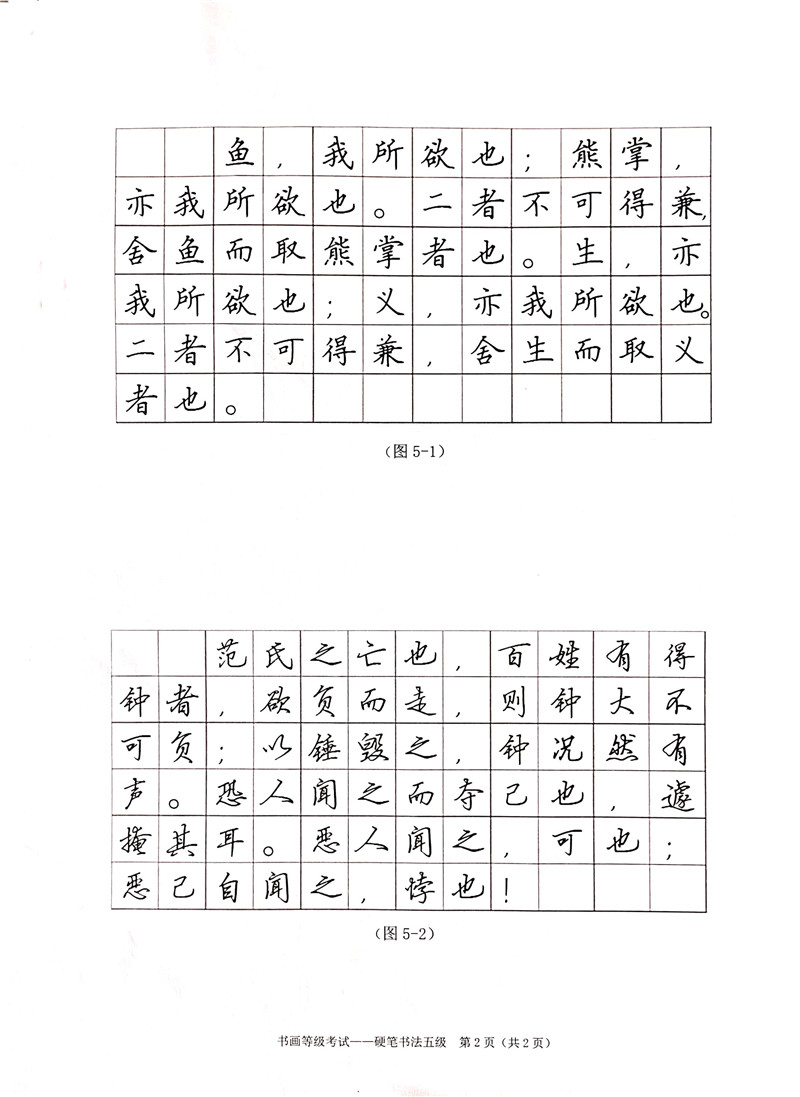 鱼，我所欲也；熊掌，
亦我所欲也。二者不可得兼，
舍鱼而取熊掌者也。生，亦
我所欲也；义，亦我所欲也。
二者不可得兼，舍生而取义
者也。
（图 5-1）
范氏之亡也，百姓有得
钟者，欲负而走，则钟大不
可负；以锤毁之，钟况然有
声。恐人闻之而夺己也，遽
掩其耳。恶人闻之，可也；
恶己自闻之，悖也！
（图 5-2）
书画等级考试——硬笔书法五级 第 2 页（共 2 页）